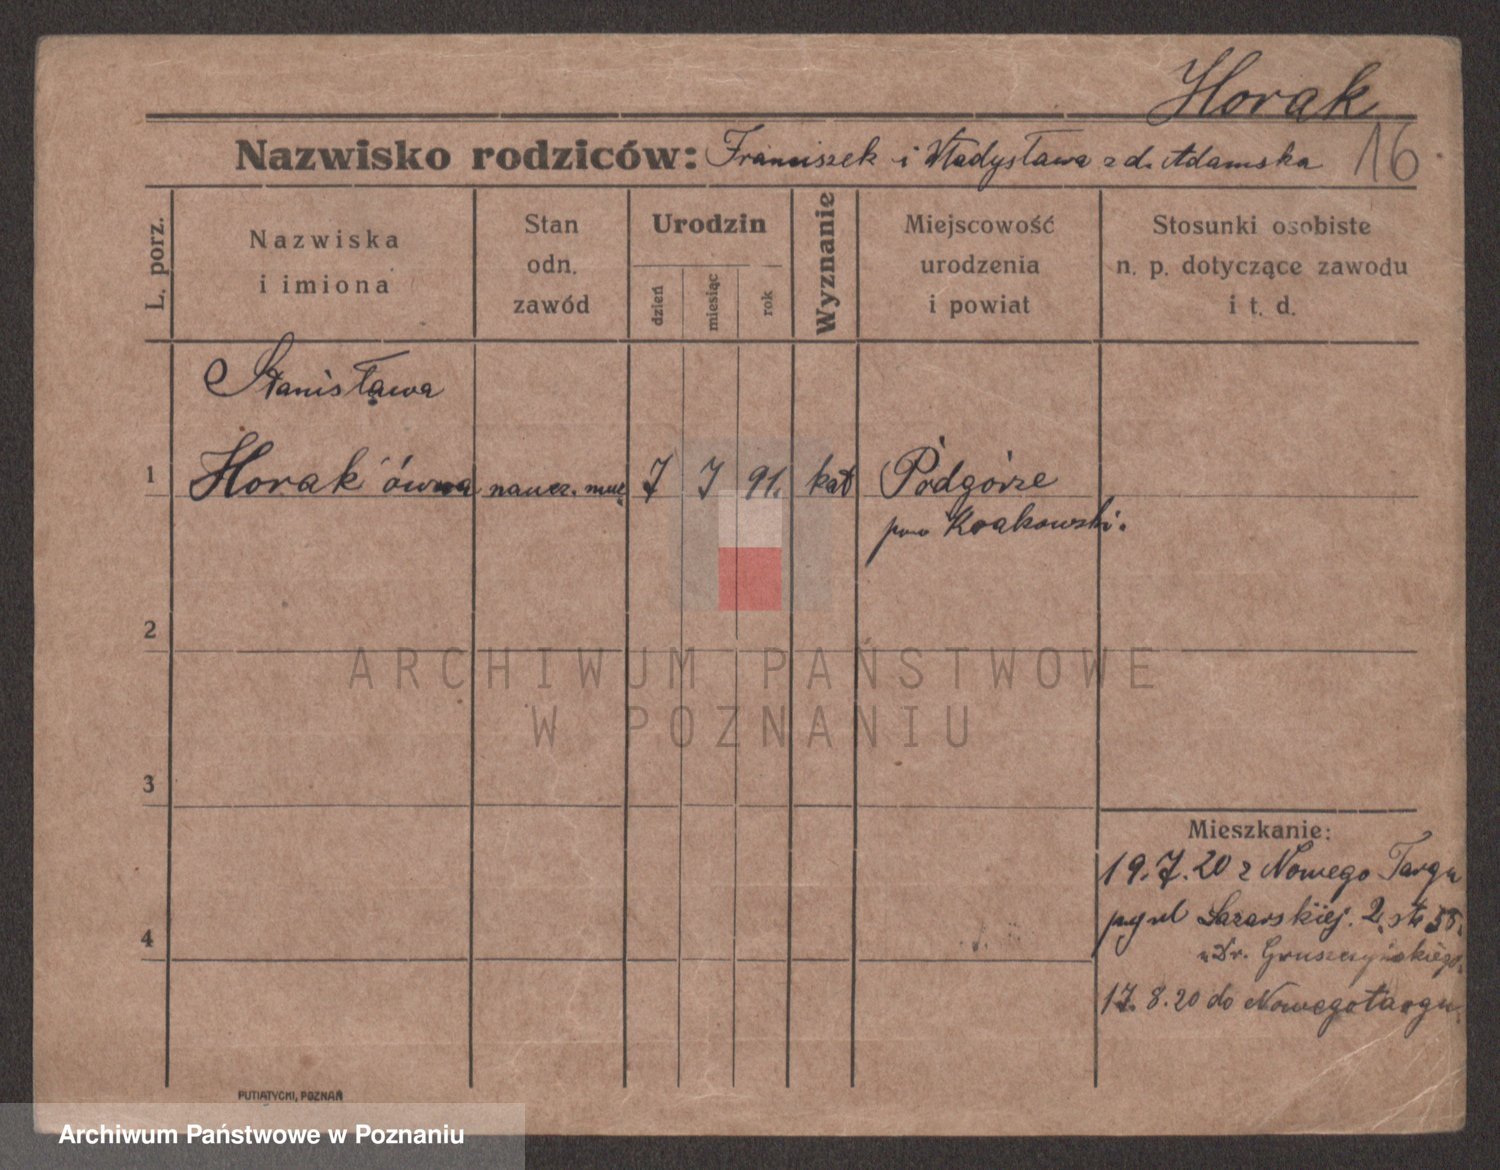 Horak
Nazwisko rodziców: Franciszek i Władysława z d. Adamska 16
L. porz.
Nazwiska
i imiona
Stan
odn.
zawód
Urodzin
dzień
miesiąc
rok
Wyznanie
Miejscowość
urodzenia
i powiat
Stosunki osobiste
n. p. dotyczące zawodu
i t. d.
Stanisława
1 Horak'ówna naucz. 7 7 91. kat Podgórze
pow Krakowski.
2
3
4
ARCHIWUM PAŃSTWOWE
W POZNANIU
Mieszkanie:
19.7.20 z Nowego Targu
Łazarskiej. 2.
u Dr. Gruszczyńskiego.
17.8.20 do Nowegotargu.
PUTIATYCKI, POZNAŃ
Archiwum Państwowe w Poznaniu